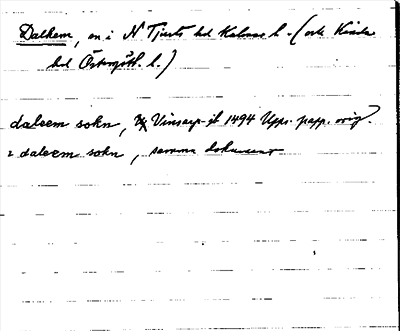 Dalhem, sn i N Tjusts hd Kalmar l. (och Kinda
hd Östergötl. l.)
daleem sokn, Vinsarp-jb 1494 Upps. papp. orig.
i daleem sokn, samma dokument